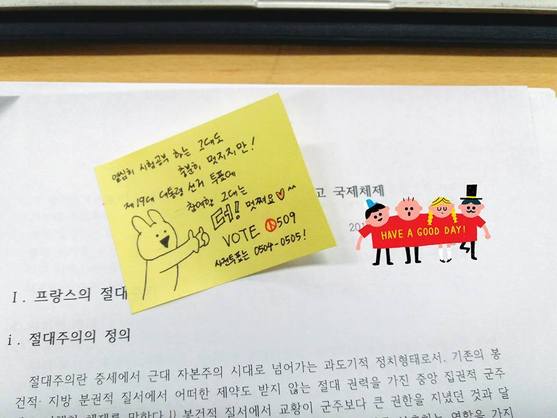 열심히 시험공부 하는 그대도
충분히 멋지지만!
제19대 대통령 선거 투표에
참여할 그대는
더! 멋쪄요♡^^
VOTE 0509
사전투표는 0504-0505!
고 국제체제
HAVE A GOOD DAY!
20
I. 프랑스의 절대
i. 절대주의의 정의
절대주의란 중세에서 근대 자본주의 시대로 넘어가는 과도기적 정치형태로서, 기존의 봉
건적· 지방 분권적 질서에서 어떠한 제약도 받지 않는 절대 권력을 가진 중앙 집권적 군주
말한다.1) 봉건적 질서에서 교황이 군주보다 큰 권한을 지녔던 것과 달